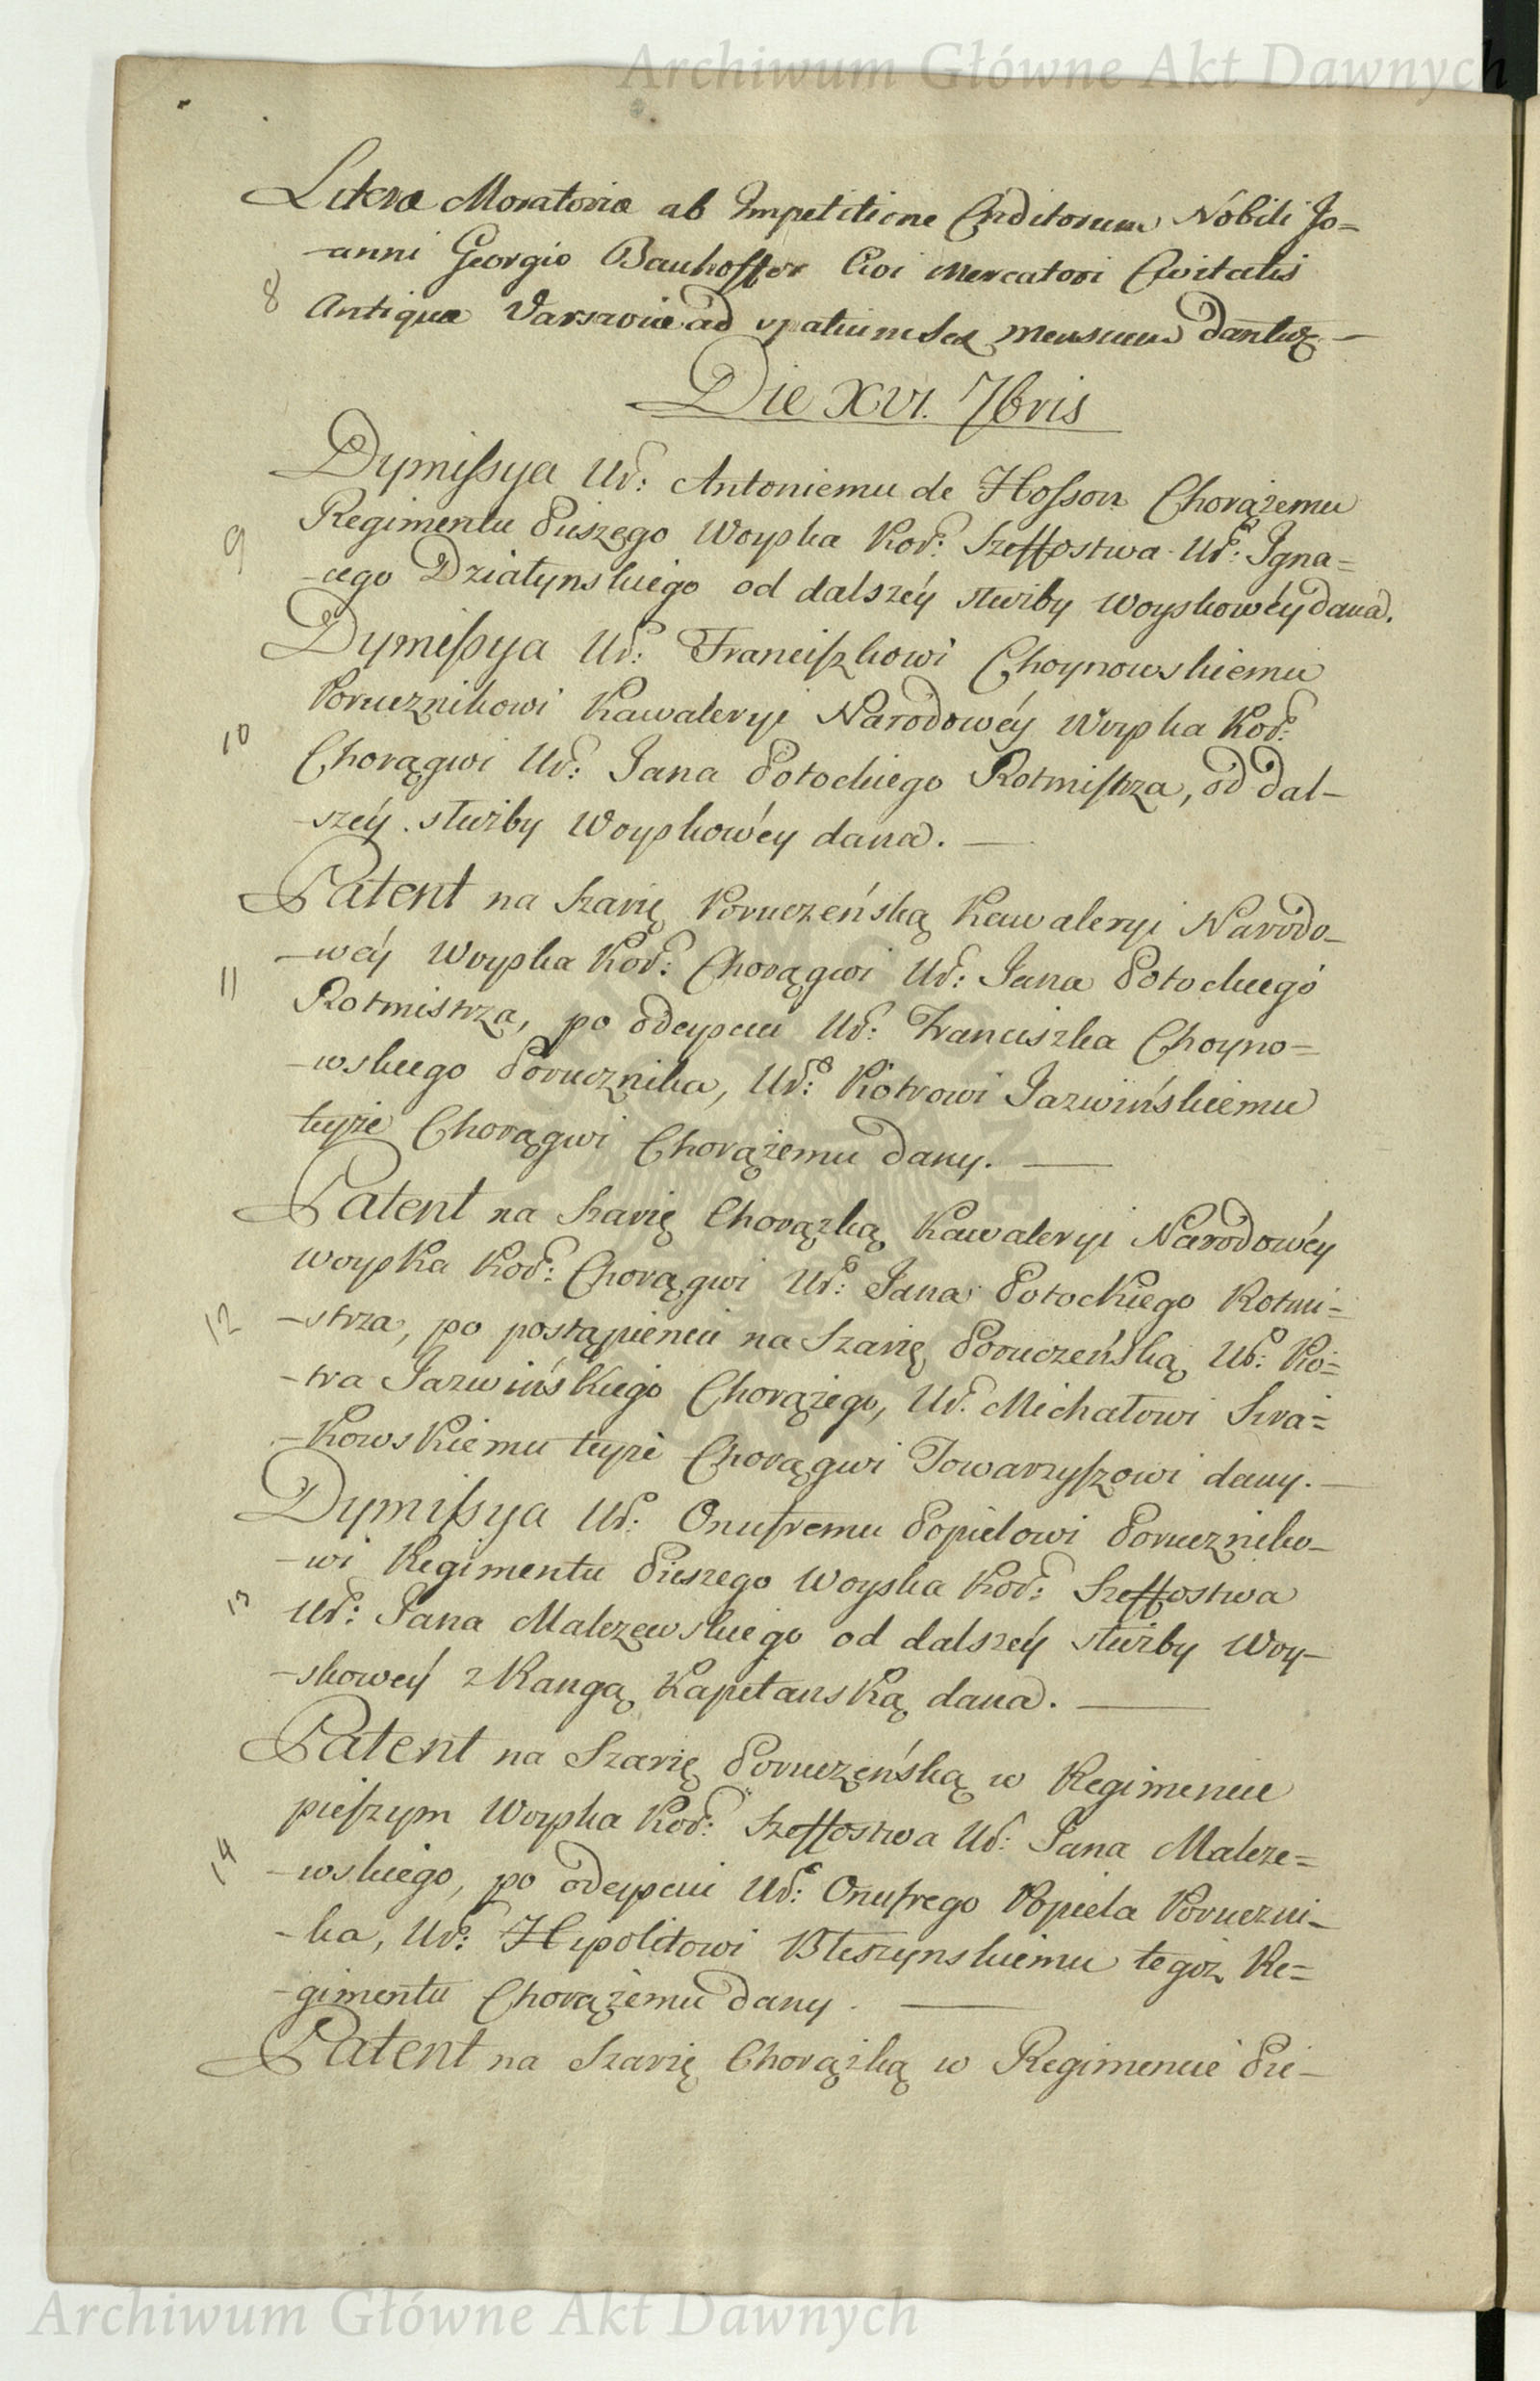 Archiwum Główne Akt Dawnych
Literæ Moratoriæ ab Impetitione Creditorum Nobili Jo=
-anni Georgio Bauhoffer Civi Mercatori Civitatis
8 Antiquæ Varsaviæ ad spatium sex mensium dantur. —
Die XVI. 7bris
Dymissya Ur: Antoniemu de Hosson Chorążemu
9 Regimentu Pieszego Woyska Kor: Szeffostwa Ur: Igna=
-cego Działynskiego od dalszéy służby woyskowéy dana.
Dymissya Ur: Franciszkowi Choynowskiemu
Porucznikowi Kawaleryi Narodowéy Woyska Kor:
10 Chorągwi Ur: Jana Potockiego Rotmistrza, od dal-
-széy służby Woyskowéy dana. —
Patent na Szarię Poruczeńską Kawaleryi Narodo-
-wéy Woyska Kor: Chorągwi Ur: Jana Potockiego
11 Rotmistrza, po odeyściu Ur: Franciszka Choyno=
-wskiego Porucznika, Ur: Piotrowi Jazwińskiemu
teyże Chorągwi Chorążemu dany. —
Patent na Szarię Chorążką Kawaleryi Narodowéy
Woyska Kor: Chorągwi Ur: Jana Potockiego Rotmi=
12 -strza, po postąpieniu na Szarię Poruczeńską Ur: Pio=
-tra Jazwińskiego Chorążego, Ur. Michałowi Skra=
-kowskiemu teyże Chorągwi Towarzyszowi dany. —
Dymissya Ur: Onufremu Popielowi Poruczniko-
-wi Regimentu Pieszego Woyska Kor: Szeffostwa
13 Ur: Jana Malczewskiego od dalszéy służby Woy-
-skowéy z Rangą Kapitanską dana. —
Patent na Szarię Poruczeńską w Regimencie
pieszym Woyska Kor: Szeffostwa Ur: Jana Malcze=
14 -wskiego, po odeyściu Ur: Onufrego Popiela Poruczni-
-ka, Ur: Hipolitowi Bleszynskiemu tegoż Re=
-gimentu Chorążemu dany. —
Patent na Szarię Chorążką w Regimencie Pie-
Archiwum Główne Akt Dawnych